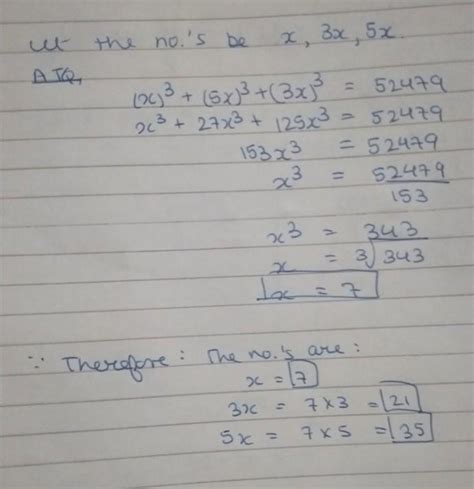 let the no.'s be x, 3x, 5x.
ATQ,
(x)³ + (5x)³ + (3x)³ = 52479
x³ + 27x³ + 125x³ = 52479
153x³ = 52479
x³ = 52479/153
x³ = 343
x = 3√343
x = 7
∵ Therefore : The no.'s are :
x = 7
3x = 7×3 = 21
5x = 7×5 = 35